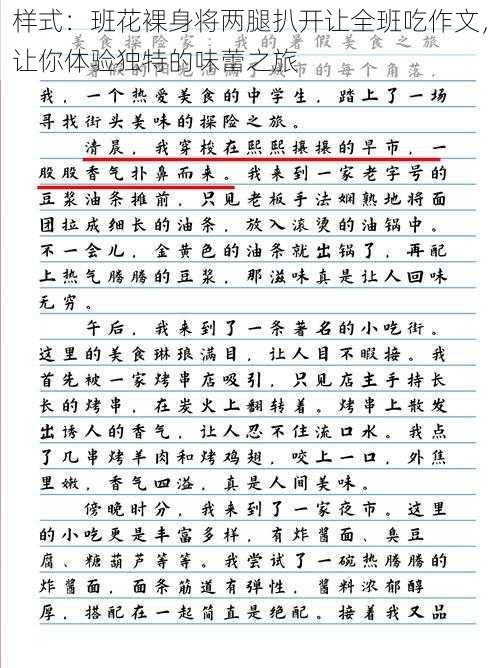 让你体验独特的味蕾之旅
我，一个热爱美食的中学生，踏上了一场
寻找街头美味的探险之旅。
清晨，我穿梭在熙熙攘攘的早市，一
股股香气扑鼻而来。我来到一家老字号的
豆浆油条摊前，只见老板手法娴熟地将面
团拉成细长的油条，放入滚烫的油锅中。
不一会儿，金黄色的油条就出锅了，再配
上热气腾腾的豆浆，那滋味真是让人回味
无穷。
午后，我来到了一条著名的小吃街。
这里的美食琳琅满目，让人目不暇接。我
首先被一家烤串店吸引，只见店主手持长
长的烤串，在炭火上翻转着。烤串上散发
出诱人的香气，让人忍不住流口水。我点
了几串烤羊肉和烤鸡翅，咬上一口，外焦
里嫩，香气四溢，真是人间美味。
傍晚时分，我来到了一家夜市。这里
的小吃更是丰富多样，有炸酱面、臭豆
腐、糖葫芦等等。我尝试了一碗热腾腾的
炸酱面，面条筋道有弹性，酱料浓郁醇
厚，搭配在一起简直是绝配。接着我又品